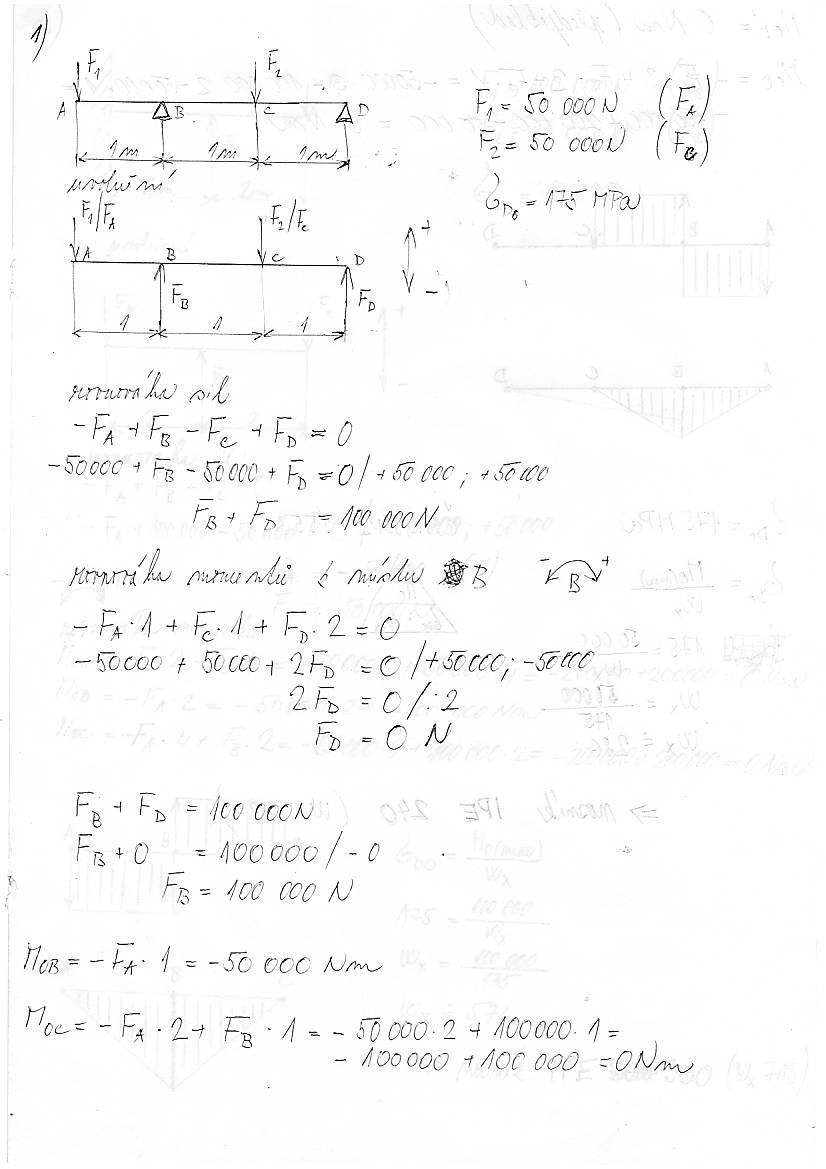 1)
F1
F2
A B C D
1m 1m 1m
F1 = 50 000N (FA)
F2 = 50 000N (FC)
σDo = 175 MPa
uvolnění
F1/FA
F2/FC
A B C D
+
-
FB
FD
1 1 1
rovnováha sil
-FA + FB - FC + FD = 0
-50000 + FB - 50000 + FD = 0 / +50 000; +50 000
FB + FD = 100 000N
rovnováha momentů k místu B
- B +
-FA · 1 + FC · 1 + FD · 2 = 0
-50000 + 50000 + 2FD = 0 / +50000; -50000
2FD = 0 /:2
FD = 0 N
FB + FD = 100 000N
FB + 0 = 100000 / -0
FB = 100 000 N
MOB = -FA · 1 = -50 000 Nm
MOC = -FA · 2 + FB · 1 = -50000·2 + 100000·1 =
-100000 + 100 000 = 0Nm